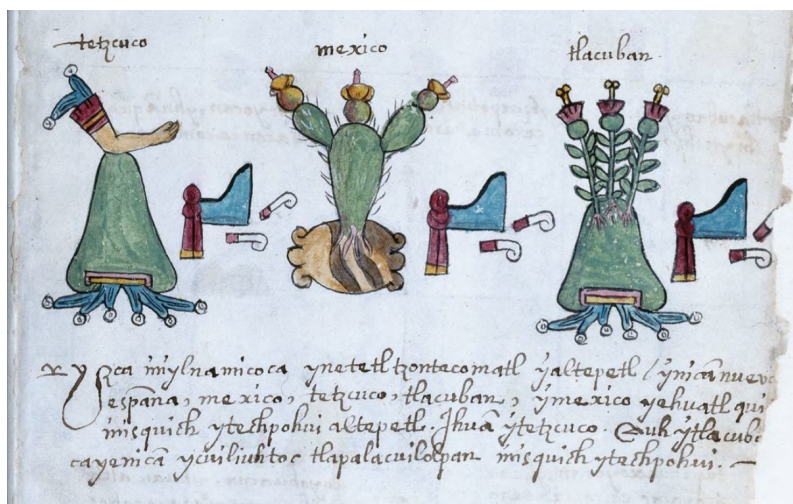 tetzcuco
mexico
tlacuban
Yzca inylnamicoca ynetetl tzontecomatl yaltepetl / ynicā nueva
españa, mexico, tetzcuco, tlacuban, ymexico yehuatl qui
misquich ytechpohui altepetl. Ihuā ytetzcuco. Euh ytlacub
cayenicā ycuiliuhtoc tlapalacuilolpan misquich ytechpohui.